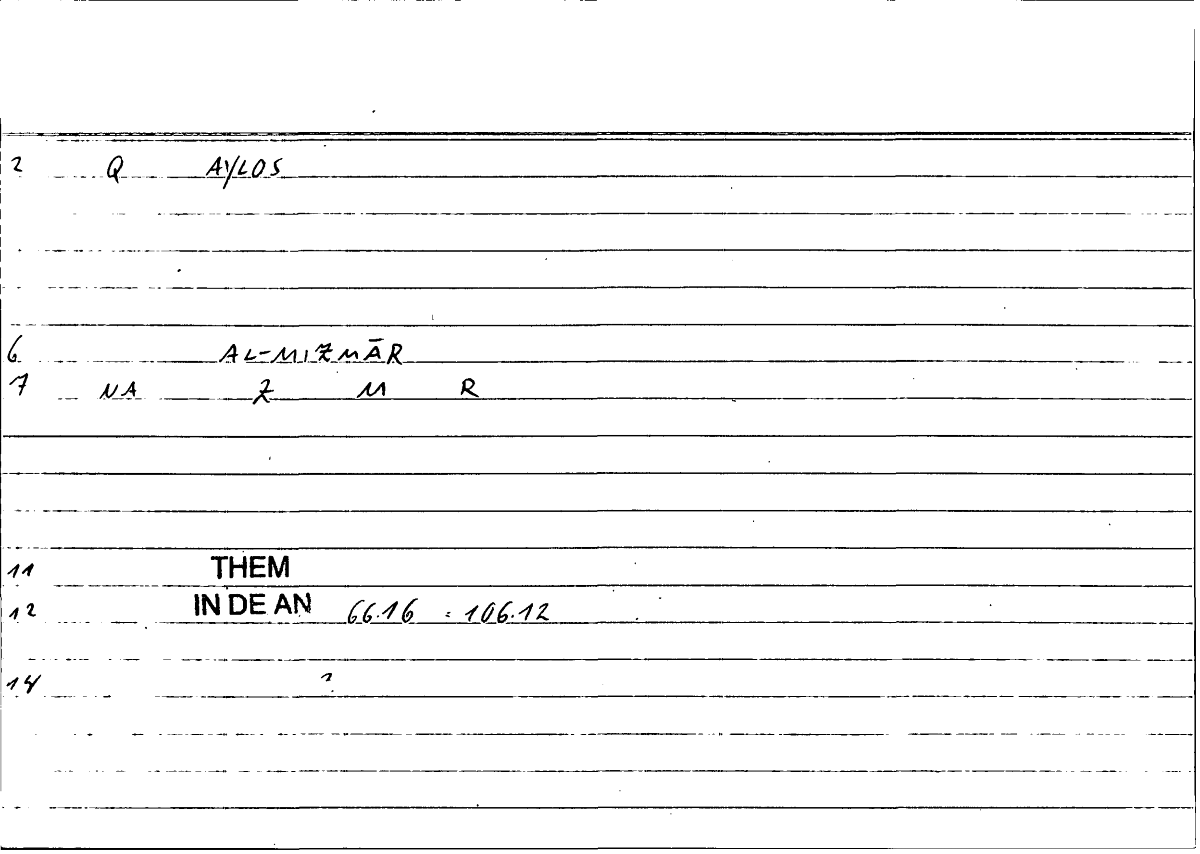 2 Q AYLOS
6 AL-MIZMĀR
7 NA Z M R
11 THEM
12 IN DE AN 66.16 = 106.12
14 1